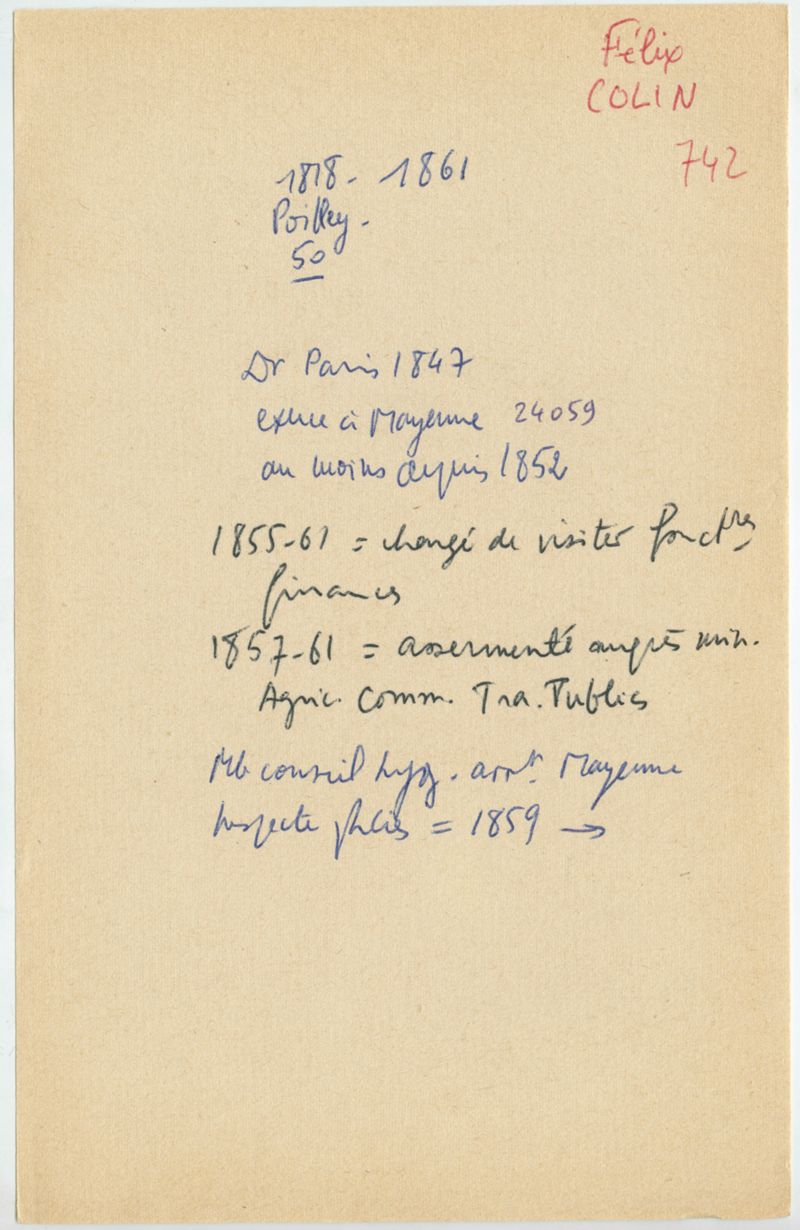 Félix
COLIN
742
1818 - 1861
Poilley.
50
Dr Paris 1847
exerce à Mayenne 24059
au moins depuis 1852
1855-61 = chargé de visiter fonctres
finances
1857-61 = assermenté auprès min.
Agric. Comm. Tra. Publics
Mb conseil hyg. arrt. Mayenne
Inspecte phcies = 1859 →